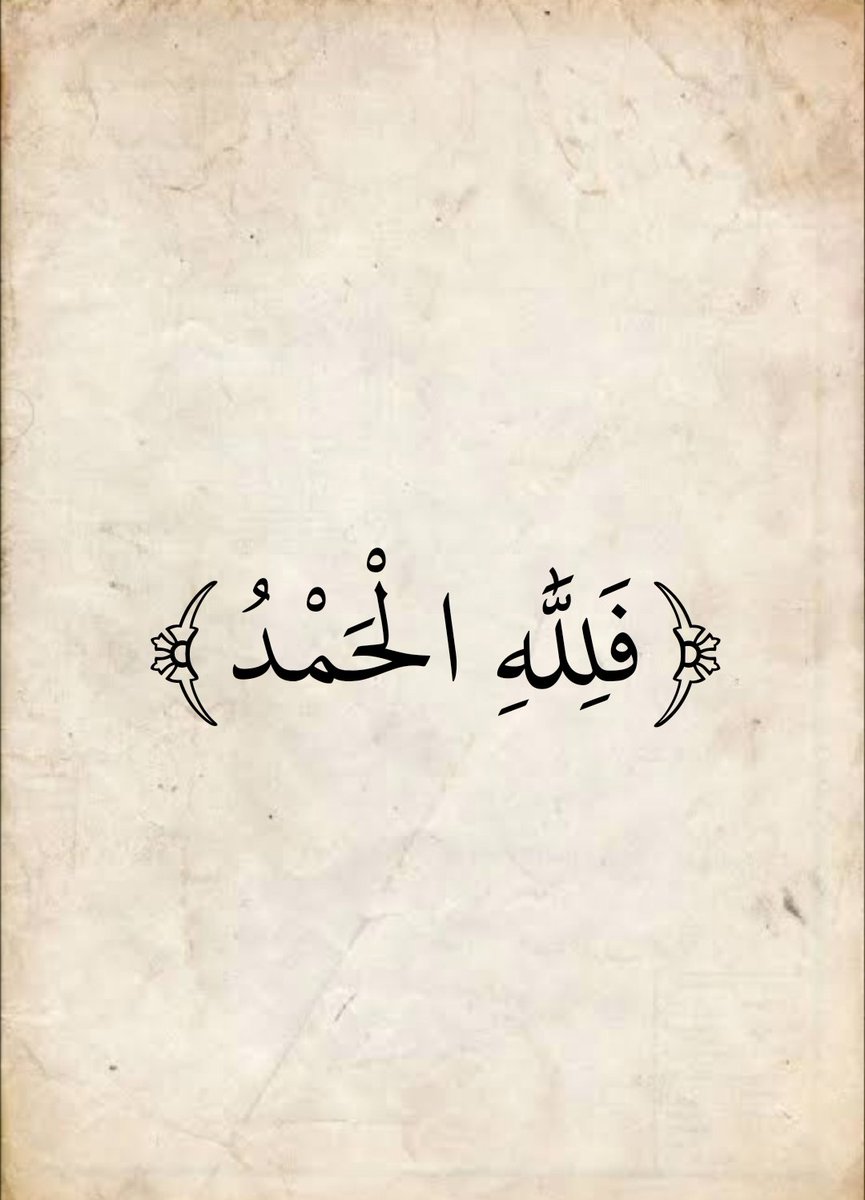 ﴿ فَلِلَّهِ الْحَمْدُ ﴾